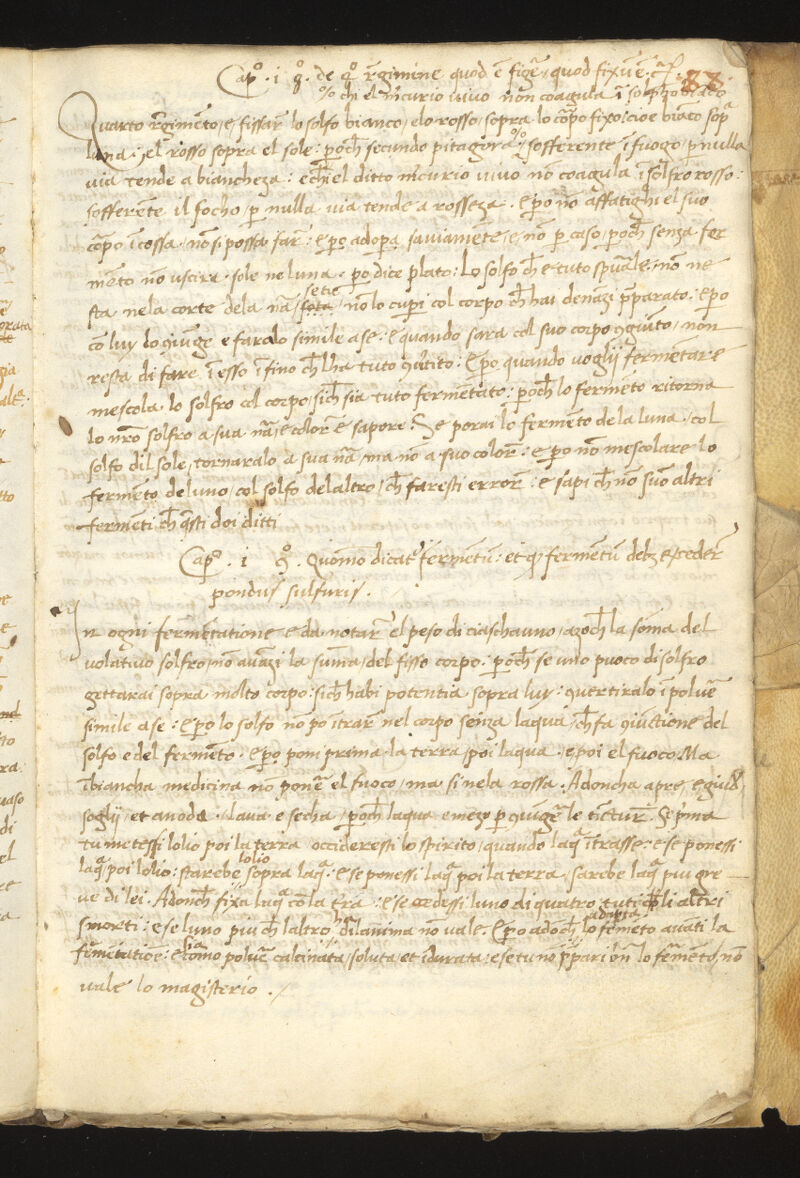 Capᵒ. i 8ᵒ. de 4ᵒ rēgimine quod ē figē, quod fixuē
88.
% chi el mercurio vivo non coagula ī solpho biāco
Quarto regimēto, e, fissar lo solfo bianco, elo rosso, sopra lo cōpo fixo: cioe biāco sopᵃ
luna: el rosso sopra el sole: poch secundo pitagora % sofferente ī fuogo, p nulla
via tende a biancheza: echi el ditto mercurio vivo nō coagula ī solfro rosso:
sofferēte il focho, p nulla via tende a rosseza. Epo nō affatighi el suo
cōpo ī cossa, nō si possa far: epo adopa saviamēte, e, nō p caso, poch senza fer
mēto nō uscira, sole ne luna. po dice plato: Lo solfo ch e tuto spuale: nō ne
setie
sta nela corte dela nā, nō lo cupi col corpo ch hai denāzi pparato: epo
cō luy lo giunge e faralo simile a se: e quando sara col suo corpo 9giūto, non
resta di fare ī esso īfino ch lha tuto 9vtito: Epo quando voglij fermētare
mescola lo solfro col corpo, sich sia tuto fermētato: poch lo fermēto ritorna
lo nro solfro a sua nā, e color e sapore. Se porai lo fermēto de la luna, col
solfo dil sole, tornaralo a sua nā, ma nō a suo color: e po nō mescolare lo
fermēto de luno, col solfo delaltro, ch faresti error: e sapi ch nō suō altri
fermēti ch qsti doi ditti
Capᵒ. i 9ᵒ. Quomo dicat fermētū: et q fermētū debz excedere
pondus sulfuris.
In ogni fermētatione e da notar el peso di ciaschauno, azoch la soma del
volativo solfro, nō avāzi la suma, del fisso corpo: poch se uno puoco di solfro
gettarai sopra molto corpo: sich habi potentia sopra luy: 9vertiralo ī polue
simile a se: epo lo solfo nō po ītrar nel corpo senza laqua, ch fa 9iūctione del
solfo e del fermēto. Epo poni prima la terra, poi laqua, e poi el fuoco. Ma
ī biancha medicina nō ponē el fuoco, ma si nela rossa. Adoncha apre, e giudi,
soglij, et anoda, lava e secha, poch laqua e mezo p 9iūgē le tictur. Se pma
tu metessi lolio poi la terra, occideresti lo spirito, quando laqᵃ ītrasse: e se ponessi
lolio
laqᵃ, poi lolio: starebe sopra laqᵃ: e se ponessi laqᵃ poi la terra, sarebe laqᵃ piu gre
ve di lei. Adonch fixa laqᵃ cō la tra: e se ocedessi luno di quatro, tuti li altri
adapta
smorti: e se luno piu ch laltro dilanima nō vale. Epo adoch lo fermēto avāti la
fermētatiōe: e cōmo polue calcinata, soluta, et īdurata: e se tu nō ppari bn lo fermēto, nō
vale lo magisterio.